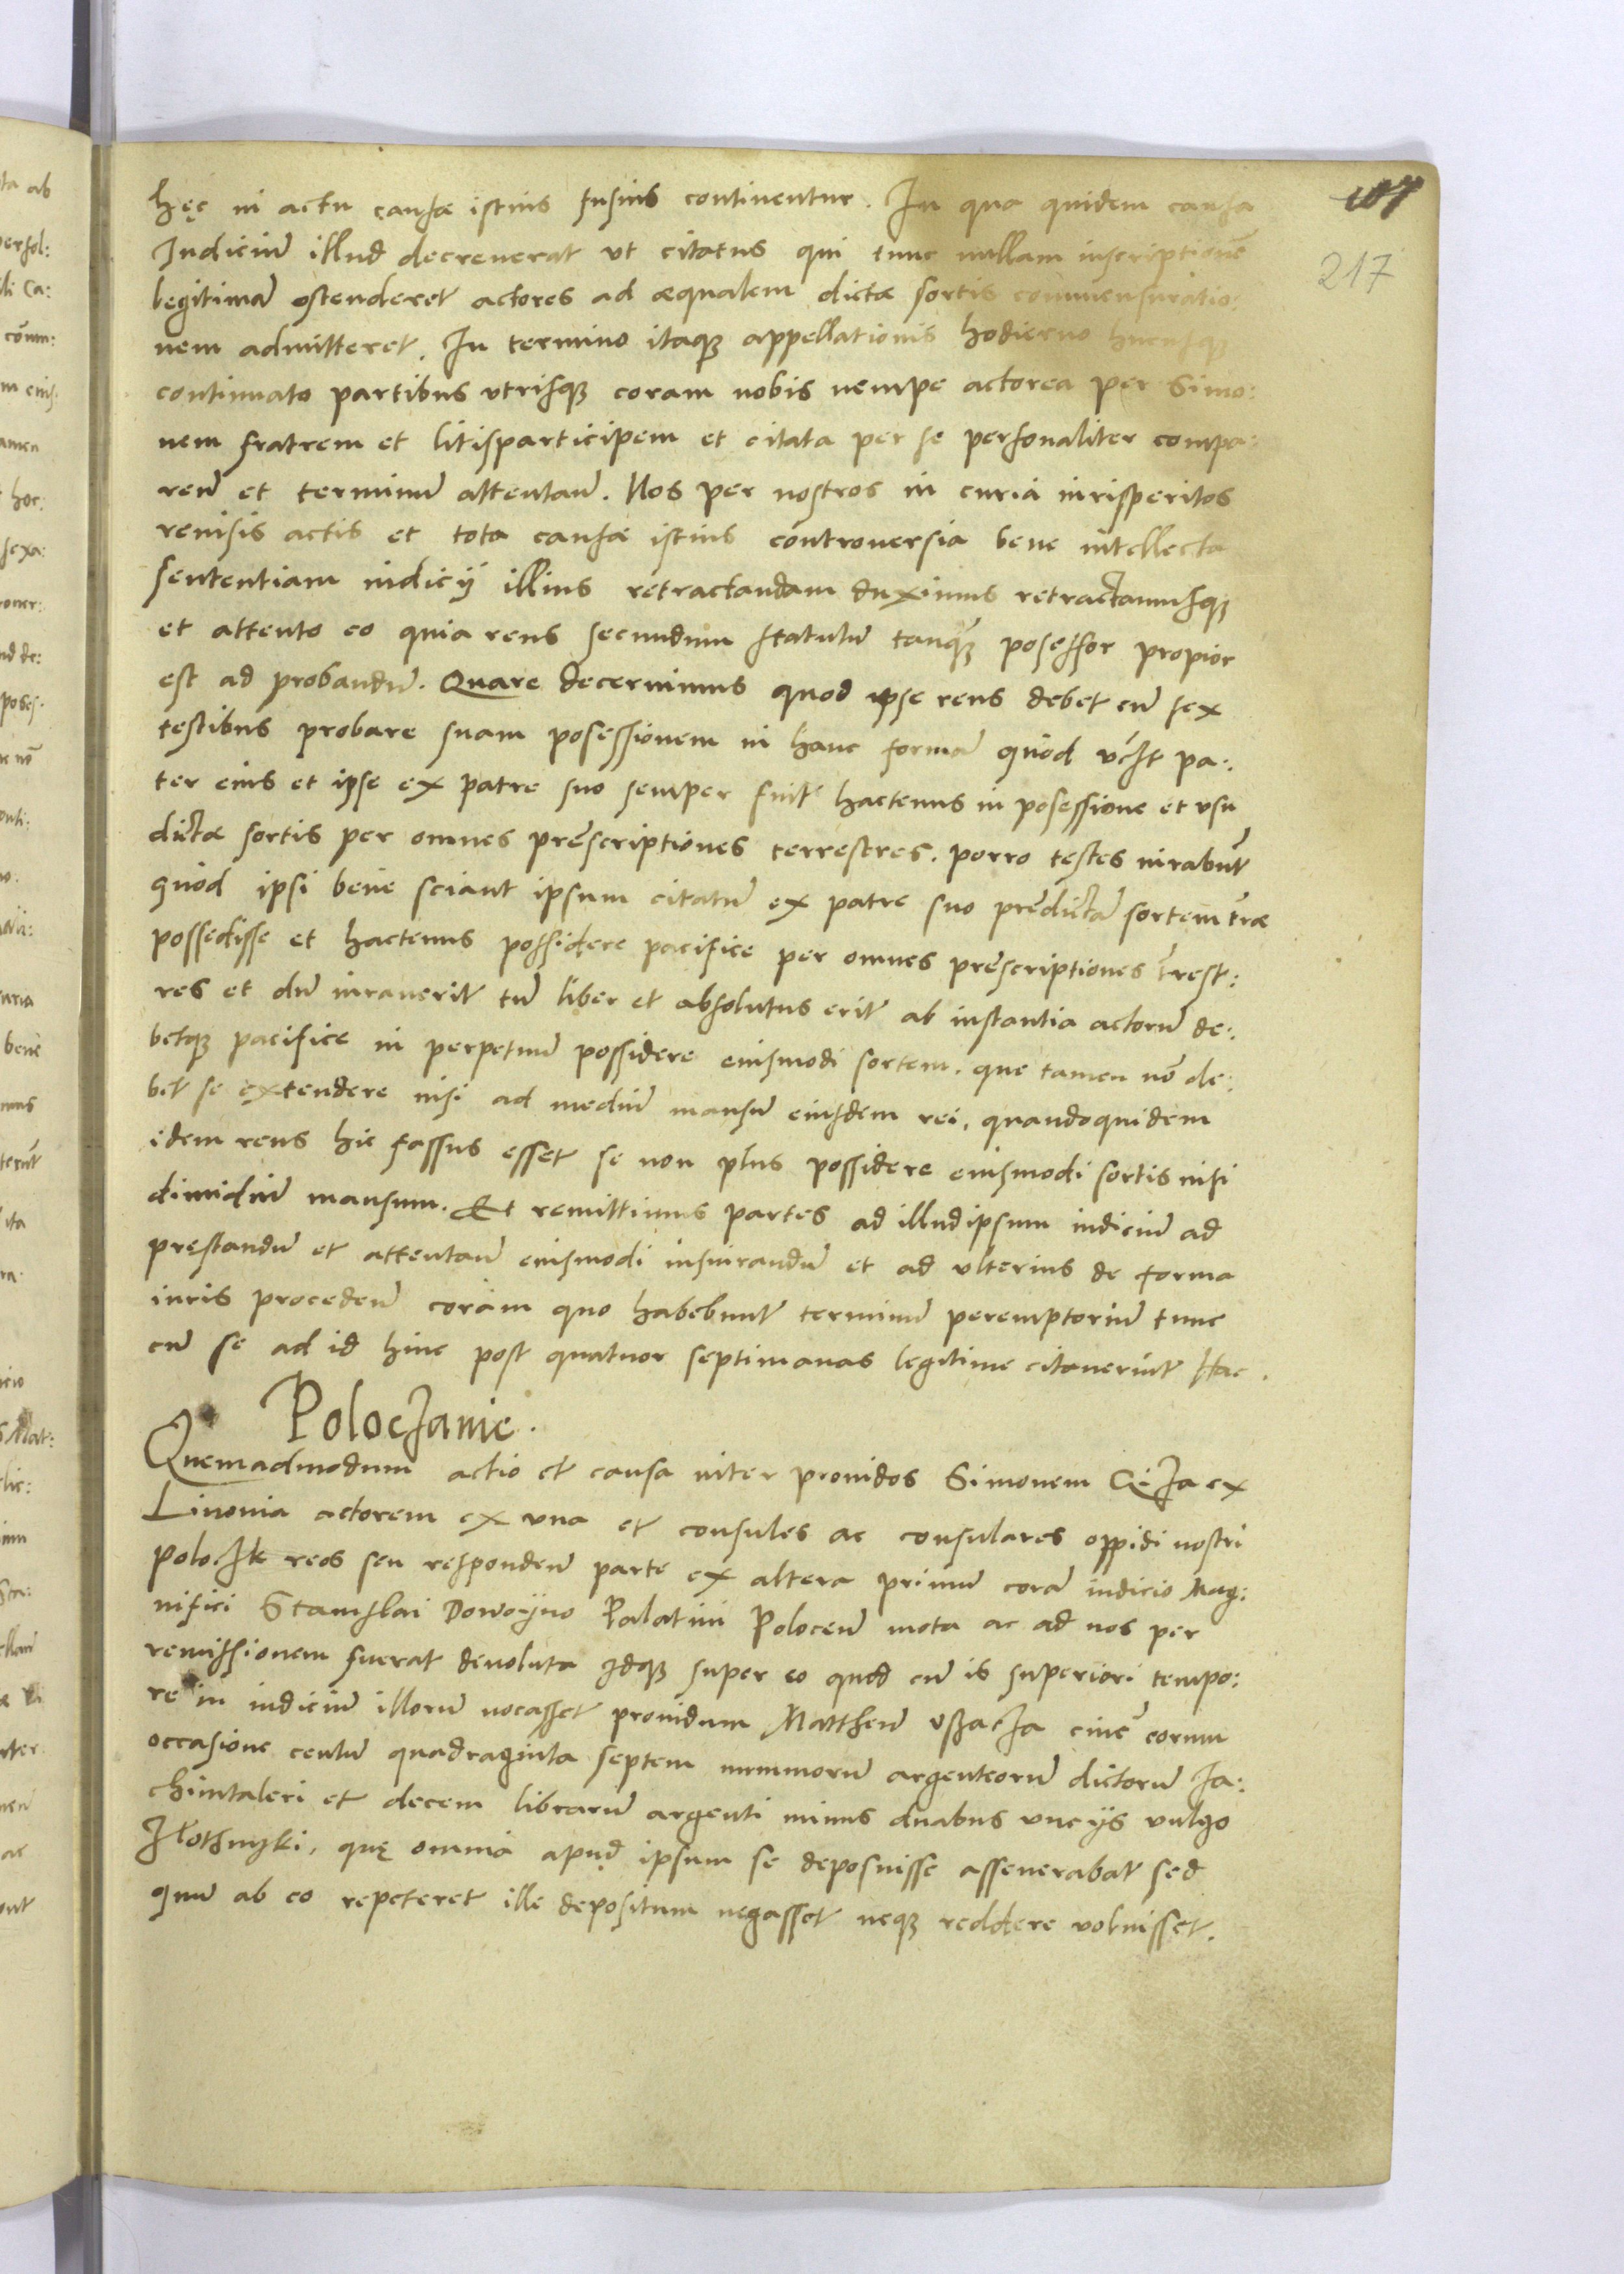 hęc in actu causæ istius fusius continentur. In qua quidem causa
Judiciũ illud decreuerat vt citatus qui tunc nullam inscriptionẽ
legitimã ostenderet actores ad æqualem dictæ sortis commensuratio:
nem admitteret. In termino itaqꝫ appellationis hodierno hucusqꝫ
continuato partibus vtrisqꝫ coram nobis nempe actorea per Simo:
nem fratrem et litisparticipem et citata per se personaliter compa:
reñ et terminũ attentañ. Nos per nostros in curia iurisperitos
reuisis actis et tota causæ istius controuersia bene intellecta
sententiam iudicÿ illius retractandam duximus retractamusqꝫ
et attento eo quia reus secundum statutũ tanqꝫ posessor propior
est ad probandũ. Quare decernimus quod ipse reus debet cũ sex
testibus probare suam posessionem in hanc formã quod vt pa:
ter eius et ipse ex patre suo semper fuit hactenus in posessione et vsu
dictæ sortis per omnes prẽscriptiones terrestres. porro testes iurabũt
quod ipsi bene sciant ipsum citatũ ex patre suo prẽdictã sortem træ
possedisse et hactenus possidere pacifice per omnes prẽscriptiones trest:
res et dũ iurauerit tũ liber et absolutus erit ab instantia actorũ de:
betqꝫ pacifice in perpetuũ possidere eiusmodi sortem. que tamen nõ de:
bet se extendere nisi ad mediũ mansũ eiusdem rei, quandoquidem
idem reus hic fassus esset se non plus possidere eiusmodi sortis nisi
dimidiũ mansum. Et remittimus partes ad illudipsum iudiciũ ad
pręstandũ et attentañ eiusmodi iusiurandũ et ad vlterius de forma
iuris procedeñ coram quo habebunt terminũ peremptoriũ tunc
cũ se ad id hinc post quatuor septimanas legitime citauerint Hac.
Poloczanie.
Quemadmodum actio et causa inter prouidos Simonem Ciza ex
Liuonia actorem ex vna et consules ac consulares oppidi nostri
Poloczk reos seu respondeñ parte ex altera primũ corã iudicio Mag:
nifici Stanislai Dowoyno Palatini Poloceñ mota ac ad nos per
remissionem fuerat deuoluta idqꝫ super eo quod cũ is superiori tempo:
re in iudiciũ illorũ vocasset prouidum Mattheũ vszacza ciuẽ eorum
occasione centũ quadraginta septem nummorũ argenteorũ dictorũ Ja:
chimtaleri et decem librarũ argenti minus duabus vncÿs vulgo
złothnyki, quę omnia apud ipsum se deposuisse asseuerabat sed
quũ ab eo repeteret ille depositum negasset neqꝫ reddere voluisset.
217